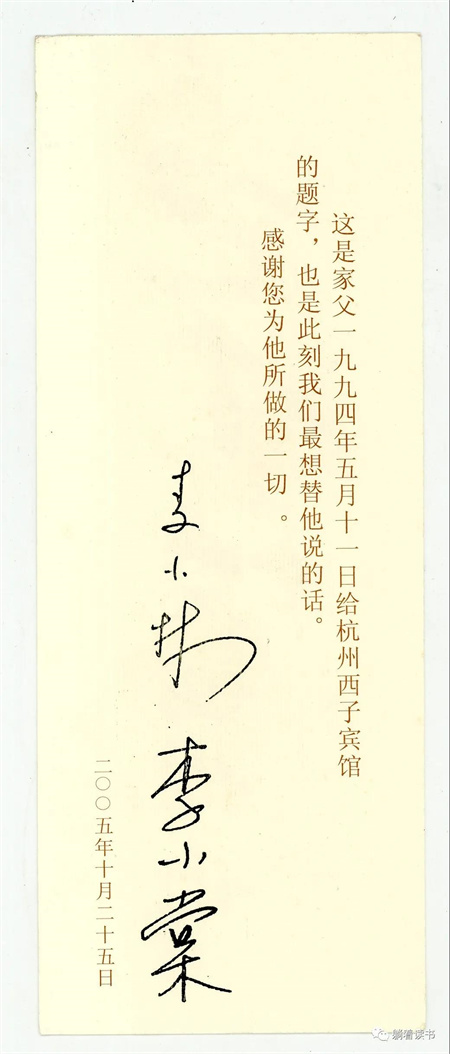 这是家父一九九四年五月十一日给杭州西子宾馆
的题字，也是此刻我们最想替他说的话。
感谢您为他所做的一切。
李小林
李小棠
二〇〇五年十月二十五日
躺着读书